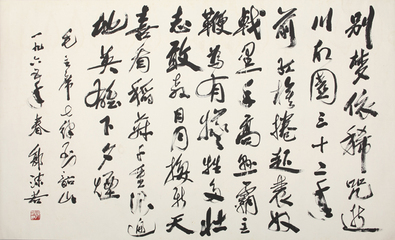 别梦依稀咒逝
川故園三十二年
前红旗捲起農奴
戟黑手高悬霸主
鞭为有犧牲多壮
志敢教日月換新天
喜看稻菽千重浪遍
地英雄下夕煙
毛主席七律到韶山
一九六五年春 郭沫若